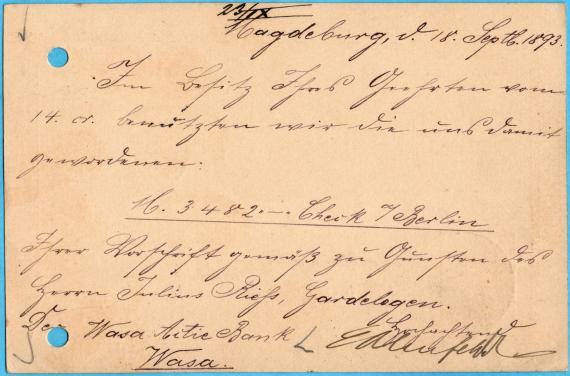 23/IX
Magdeburg, d. 18. Septb. 1893.
Im Besitz Ihres Geehrten vom
14. cr. benutzten wir die uns damit
gewordenen:
M. 3482.— Check a/Berlin
Ihrer Vorschrift gemäß zu Gunsten des
Herrn Julius Rieß, Gardelegen.
Hochachtend
Der Wasa Actie Bank
Wasa.